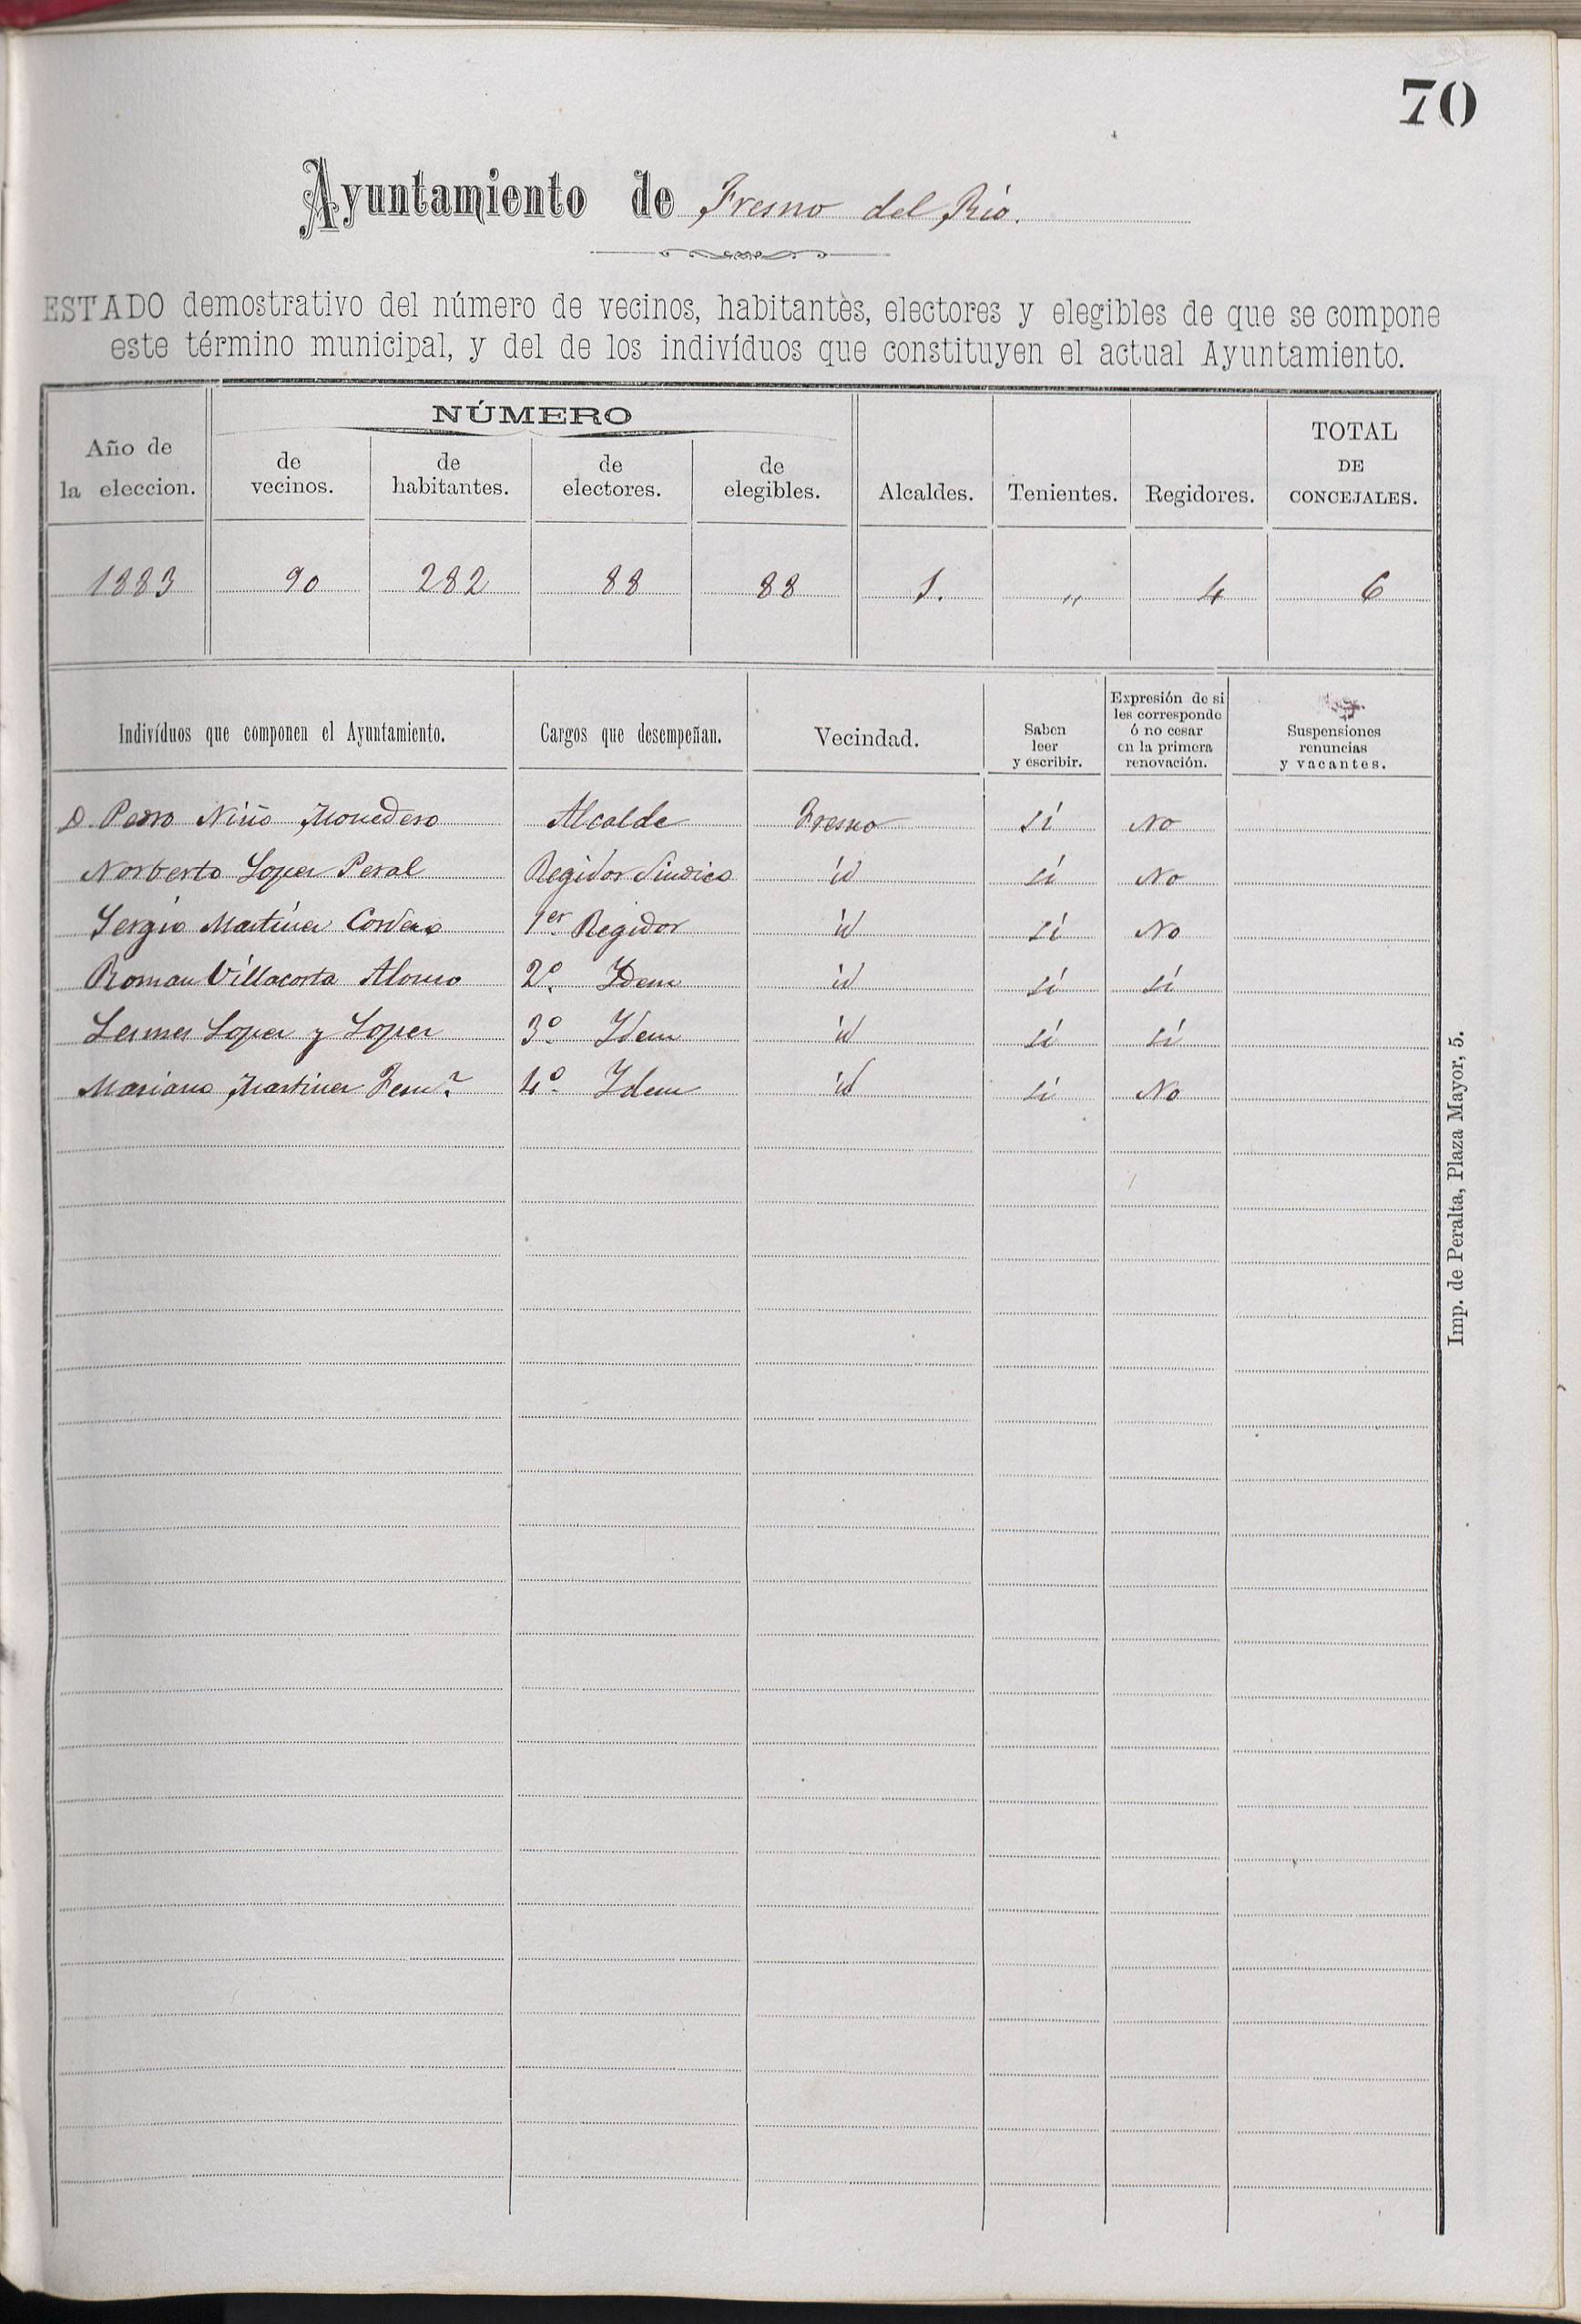 70
Ayuntamiento de Fresno del Río.
ESTADO demostrativo del número de vecinos, habitantes, electores y elegibles de que se compone
este término municipal, y del de los indivíduos que constituyen el actual Ayuntamiento.
Año de la eleccion. NÚMERO de vecinos. de habitantes. de electores. de elegibles. Alcaldes. Tenientes. Regidores. TOTAL DE CONCEJALES.
1883 90 282 88 88 1. " 4 6
Indivíduos que componen el Ayuntamiento. Cargos que desempeñan. Vecindad. Saben leer y escribir. Expresión de si les corresponde ó no cesar en la primera renovación. Suspensiones renuncias y vacantes.
D. Pedro Niño Monedero Alcalde Fresno sí No
Norberto Lopez Peral Regidor Sindico id sí No
Sergio Martinez Cordero 1er Regidor id sí No
Roman Villacorta Alonso 2º Idem id sí sí
Lesmes Lopez y Lopez 3º Idem id sí sí
Mariano Martinez Fernz 4º Idem id sí No
Imp. de Peralta, Plaza Mayor, 5.